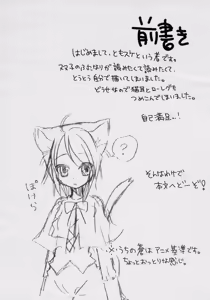 前書き
はじめまして、ともスケという者です。
スマ子のふたりが読みたくて読みたくて、
とうとう自分で描いてしまいました。
どうせなので猫耳とローレグも
つめこんでしまいました。
自己満足..!
?
ぽけら
そんなわけで
本文へどーぞ!
※うちの蒼はアニメ基準です。
ちょっとおっとりな感じ。